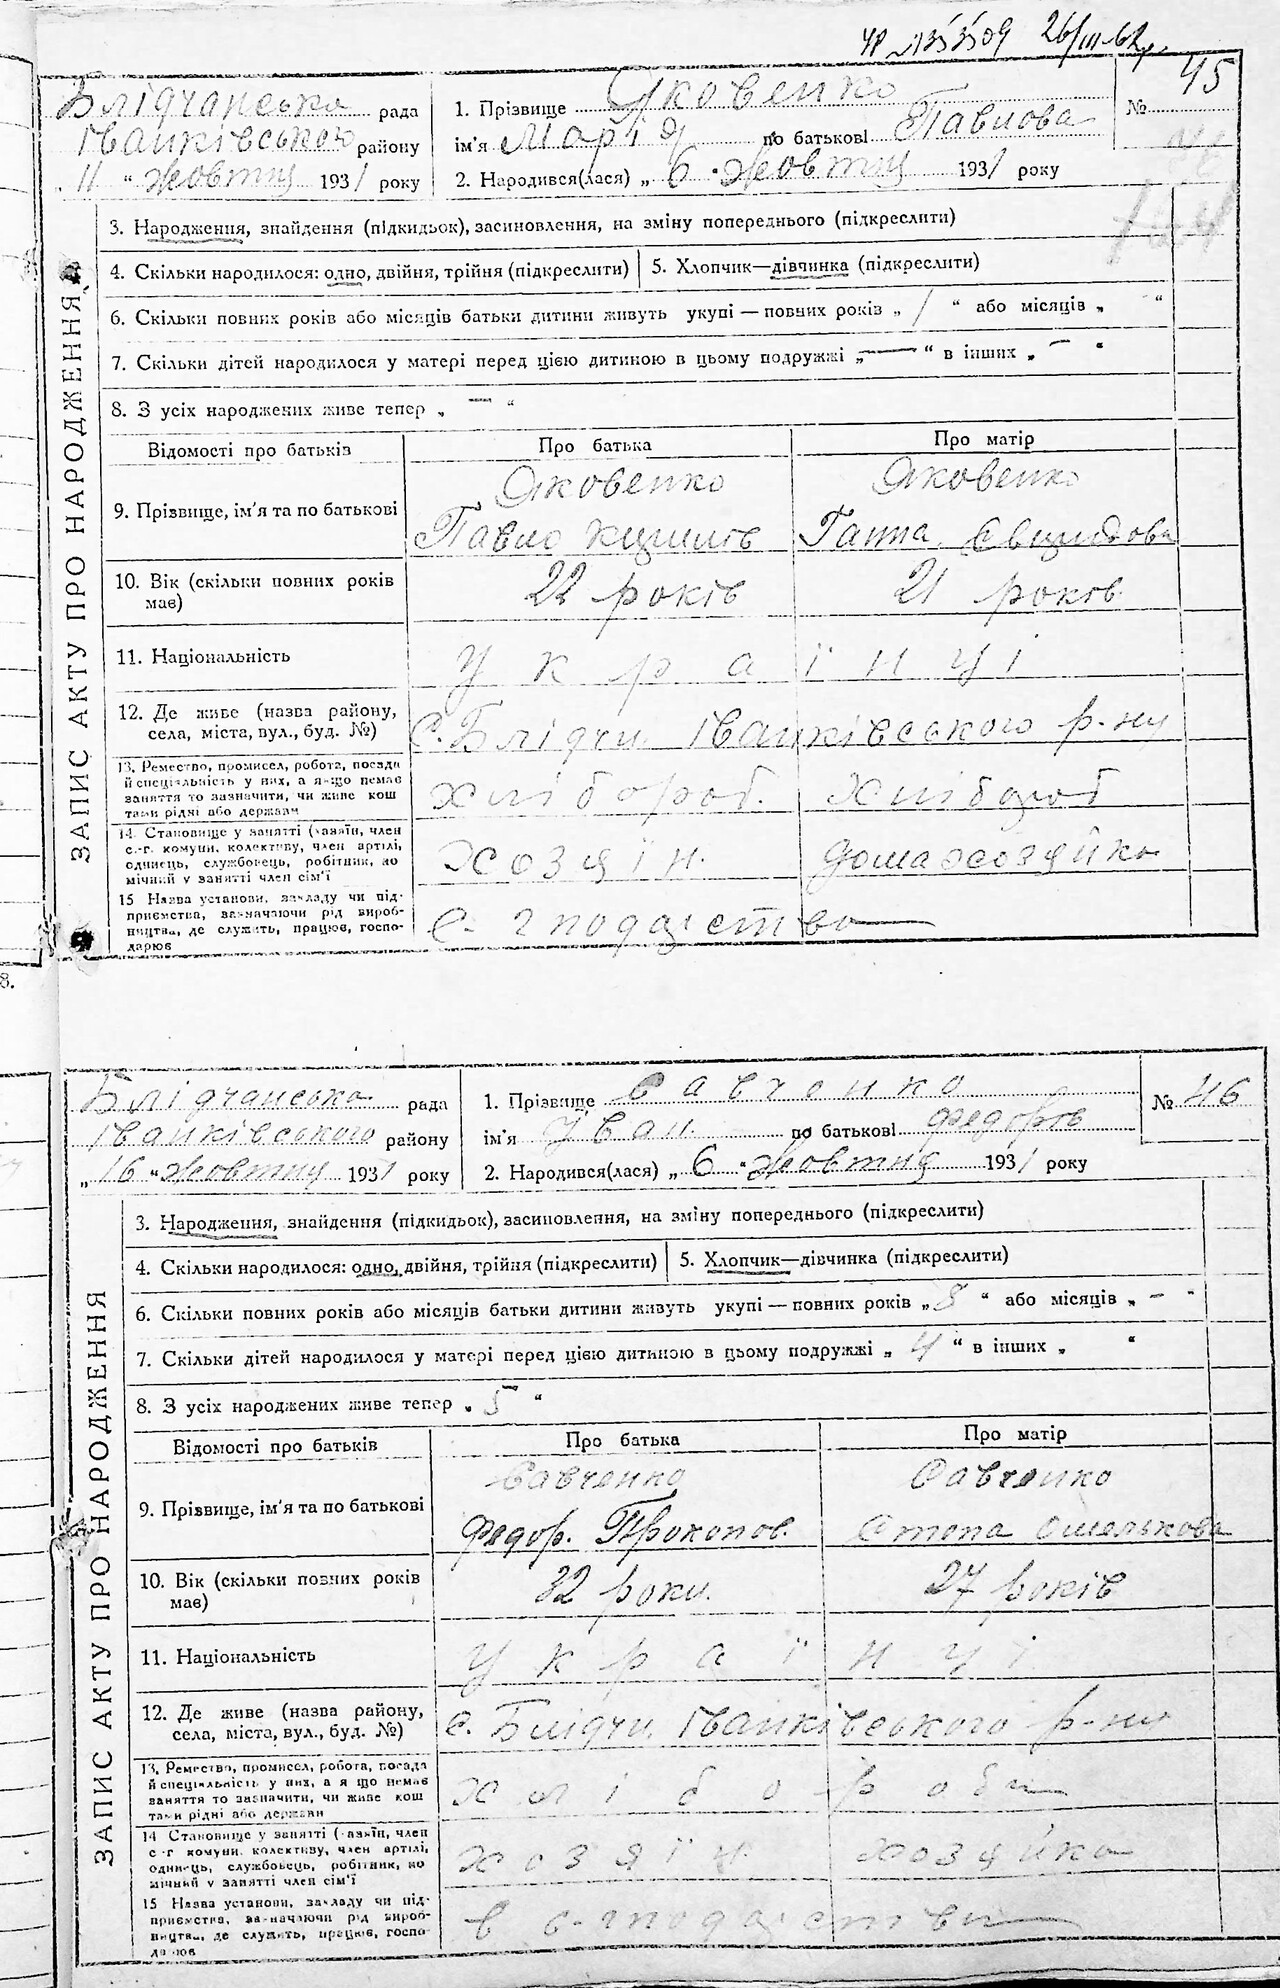 26/III-62
Блідчанська рада
Іванківського району
„ 11 “ жовтня 1931 року
1. Прізвище Яковенко
ім'я Марія по батькові Павлова
2. Народився(лася) „ 6 “ жовтня 1931 року
№ 45
ЗАПИС АКТУ ПРО НАРОДЖЕННЯ
3. Народження, знайдення (підкидьок), засиновлення, на зміну попереднього (підкреслити)
4. Скільки народилося: одно, двійня, трійня (підкреслити)
5. Хлопчик—дівчинка (підкреслити)
6. Скільки повних років або місяців батьки дитини живуть укупі — повних років „ 1 “ або місяців „ “
7. Скільки дітей народилося у матері перед цією дитиною в цьому подружжі „ — “ в інших „ — “
8. З усіх народжених живе тепер „ — “
Відомості про батьків
Про батька
Про матір
9. Прізвище, ім'я та по батькові
Яковенко
Павло
Яковенко
Ганна
10. Вік (скільки повних років
має)
22 років
21 років
11. Національність
українці
12. Де живе (назва району,
села, міста, вул., буд. №)
с. Блідчи Іванківського р-ну
13. Ремество, промисел, робота, посада
й спеціяльність у них, а якщо немає
заняття то зазначити, чи живе кош
тами рідні або держави
хлібороб.
хлібороб
14. Становище у занятті (хазяїн, член
с.-г. комуни, колективу, член артілі,
одинець, службовець, робітник, по
мічний у занятті член сім'ї
хозяїн.
домахозяйка
15 Назва установи, закладу чи під-
приємства, зазначаючи рід вироб-
ництва, де служить, працює, госпо-
дарює
с-господарство
8.
Блідчанська рада
Іванківського району
„ 16 “ жовтня 1931 року
1. Прізвище Савченко
ім'я Іван по батькові Федорів
2. Народився(лася) „ 6 “ жовтня 1931 року
№ 46
ЗАПИС АКТУ ПРО НАРОДЖЕННЯ
3. Народження, знайдення (підкидьок), засиновлення, на зміну попереднього (підкреслити)
4. Скільки народилося: одно, двійня, трійня (підкреслити)
5. Хлопчик—дівчинка (підкреслити)
6. Скільки повних років або місяців батьки дитини живуть укупі — повних років „ 8 “ або місяців „ — “
7. Скільки дітей народилося у матері перед цією дитиною в цьому подружжі „ 4 “ в інших „ “
8. З усіх народжених живе тепер „ 5 “
Відомості про батьків
Про батька
Про матір
9. Прізвище, ім'я та по батькові
Савченко
Федор. Прокопов.
Савченко
Степа Омелькова
10. Вік (скільки повних років
має)
32 роки.
27 років
11. Національність
українці
12. Де живе (назва району,
села, міста, вул., буд. №)
с. Блідчи Іванківського р-ну
13. Ремество, промисел, робота, посада
й спеціяльність у них, а якщо немає
заняття то зазначити, чи живе кош
тами рідні або держави
хлібороби
14 Становище у занятті (хазяїн, член
с-г комуни, колективу, член артілі,
одинець, службовець, робітник, по
мічний у занятті член сім'ї
хозяїн
хозяйка
15 Назва установи, закладу чи під-
приємства, зазначаючи рід вироб-
ництва, де служить, працює, госпо-
дарює
в с-господарстви